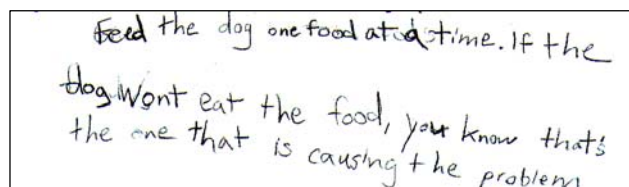 Feed the dog one food at a time. If the
dog wont eat the food, you know that's
the one that is causing the problem